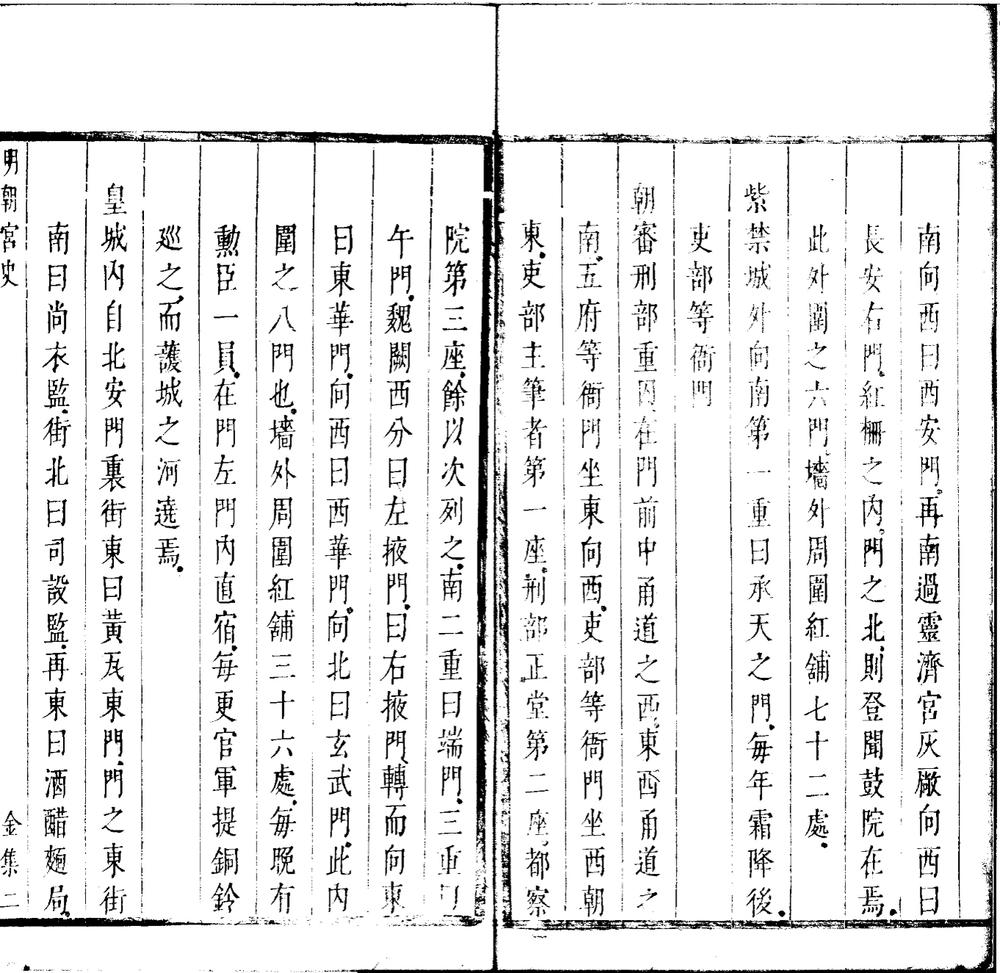 南向西曰西安門再南過靈濟宮灰厰向西曰
長安右門紅柵之內門之北則登聞鼓院在焉
此外圍之六門墻外周圍紅舖七十二處
紫禁城外向南第一重曰承天之門每年霜降後
吏部等衙門
朝審刑部重囚在門前中甬道之西東西甬道之
南五府等衙門坐東向西吏部等衙門坐西朝
東吏部主筆者第一座刑部正堂第二座都察
院第三座餘以次列之南二重曰端門三重曰
午門魏闕西分曰左掖門曰右掖門轉而向東
曰東華門向西曰西華門向北曰玄武門此內
圍之八門也墻外周圍紅舖三十六處每晚有
勳臣一員在門左門內直宿每更官軍提銅鈴
廵之而護城之河遶焉
皇城內自北安門裏街東曰黃瓦東門門之東街
南曰尚衣監街北曰司設監再東曰酒醋麵局
明朝宮史 金集二